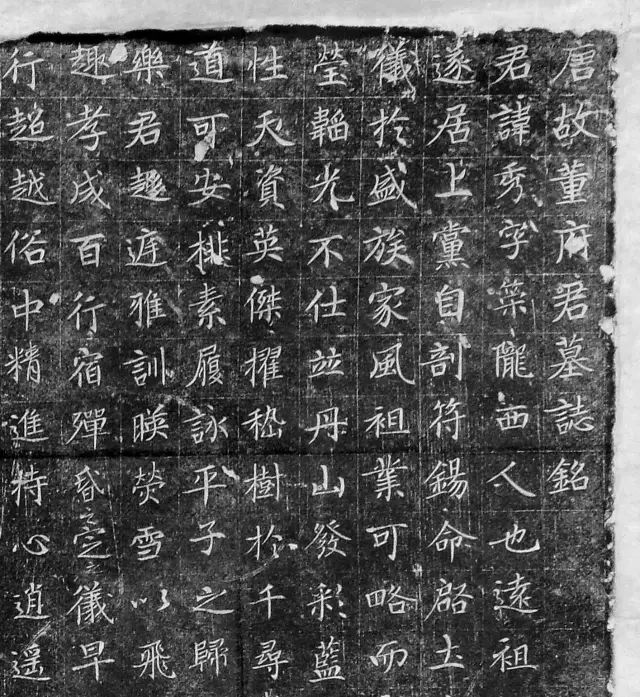 唐故董府君墓誌銘
君諱秀字䇿隴西人也遠祖
遂居上黨自剖符錫命啓土
儀於盛族家風祖業可略而
瑩韜光不仕並丹山發彩藍
性天資英傑擢嵇樹於千尋
道可安棑素履詠平子之歸
樂君趍庭雅訓暎熒雪以飛
趣孝成百行宿殫昏定之儀早
行超越俗中精進持心逍遥